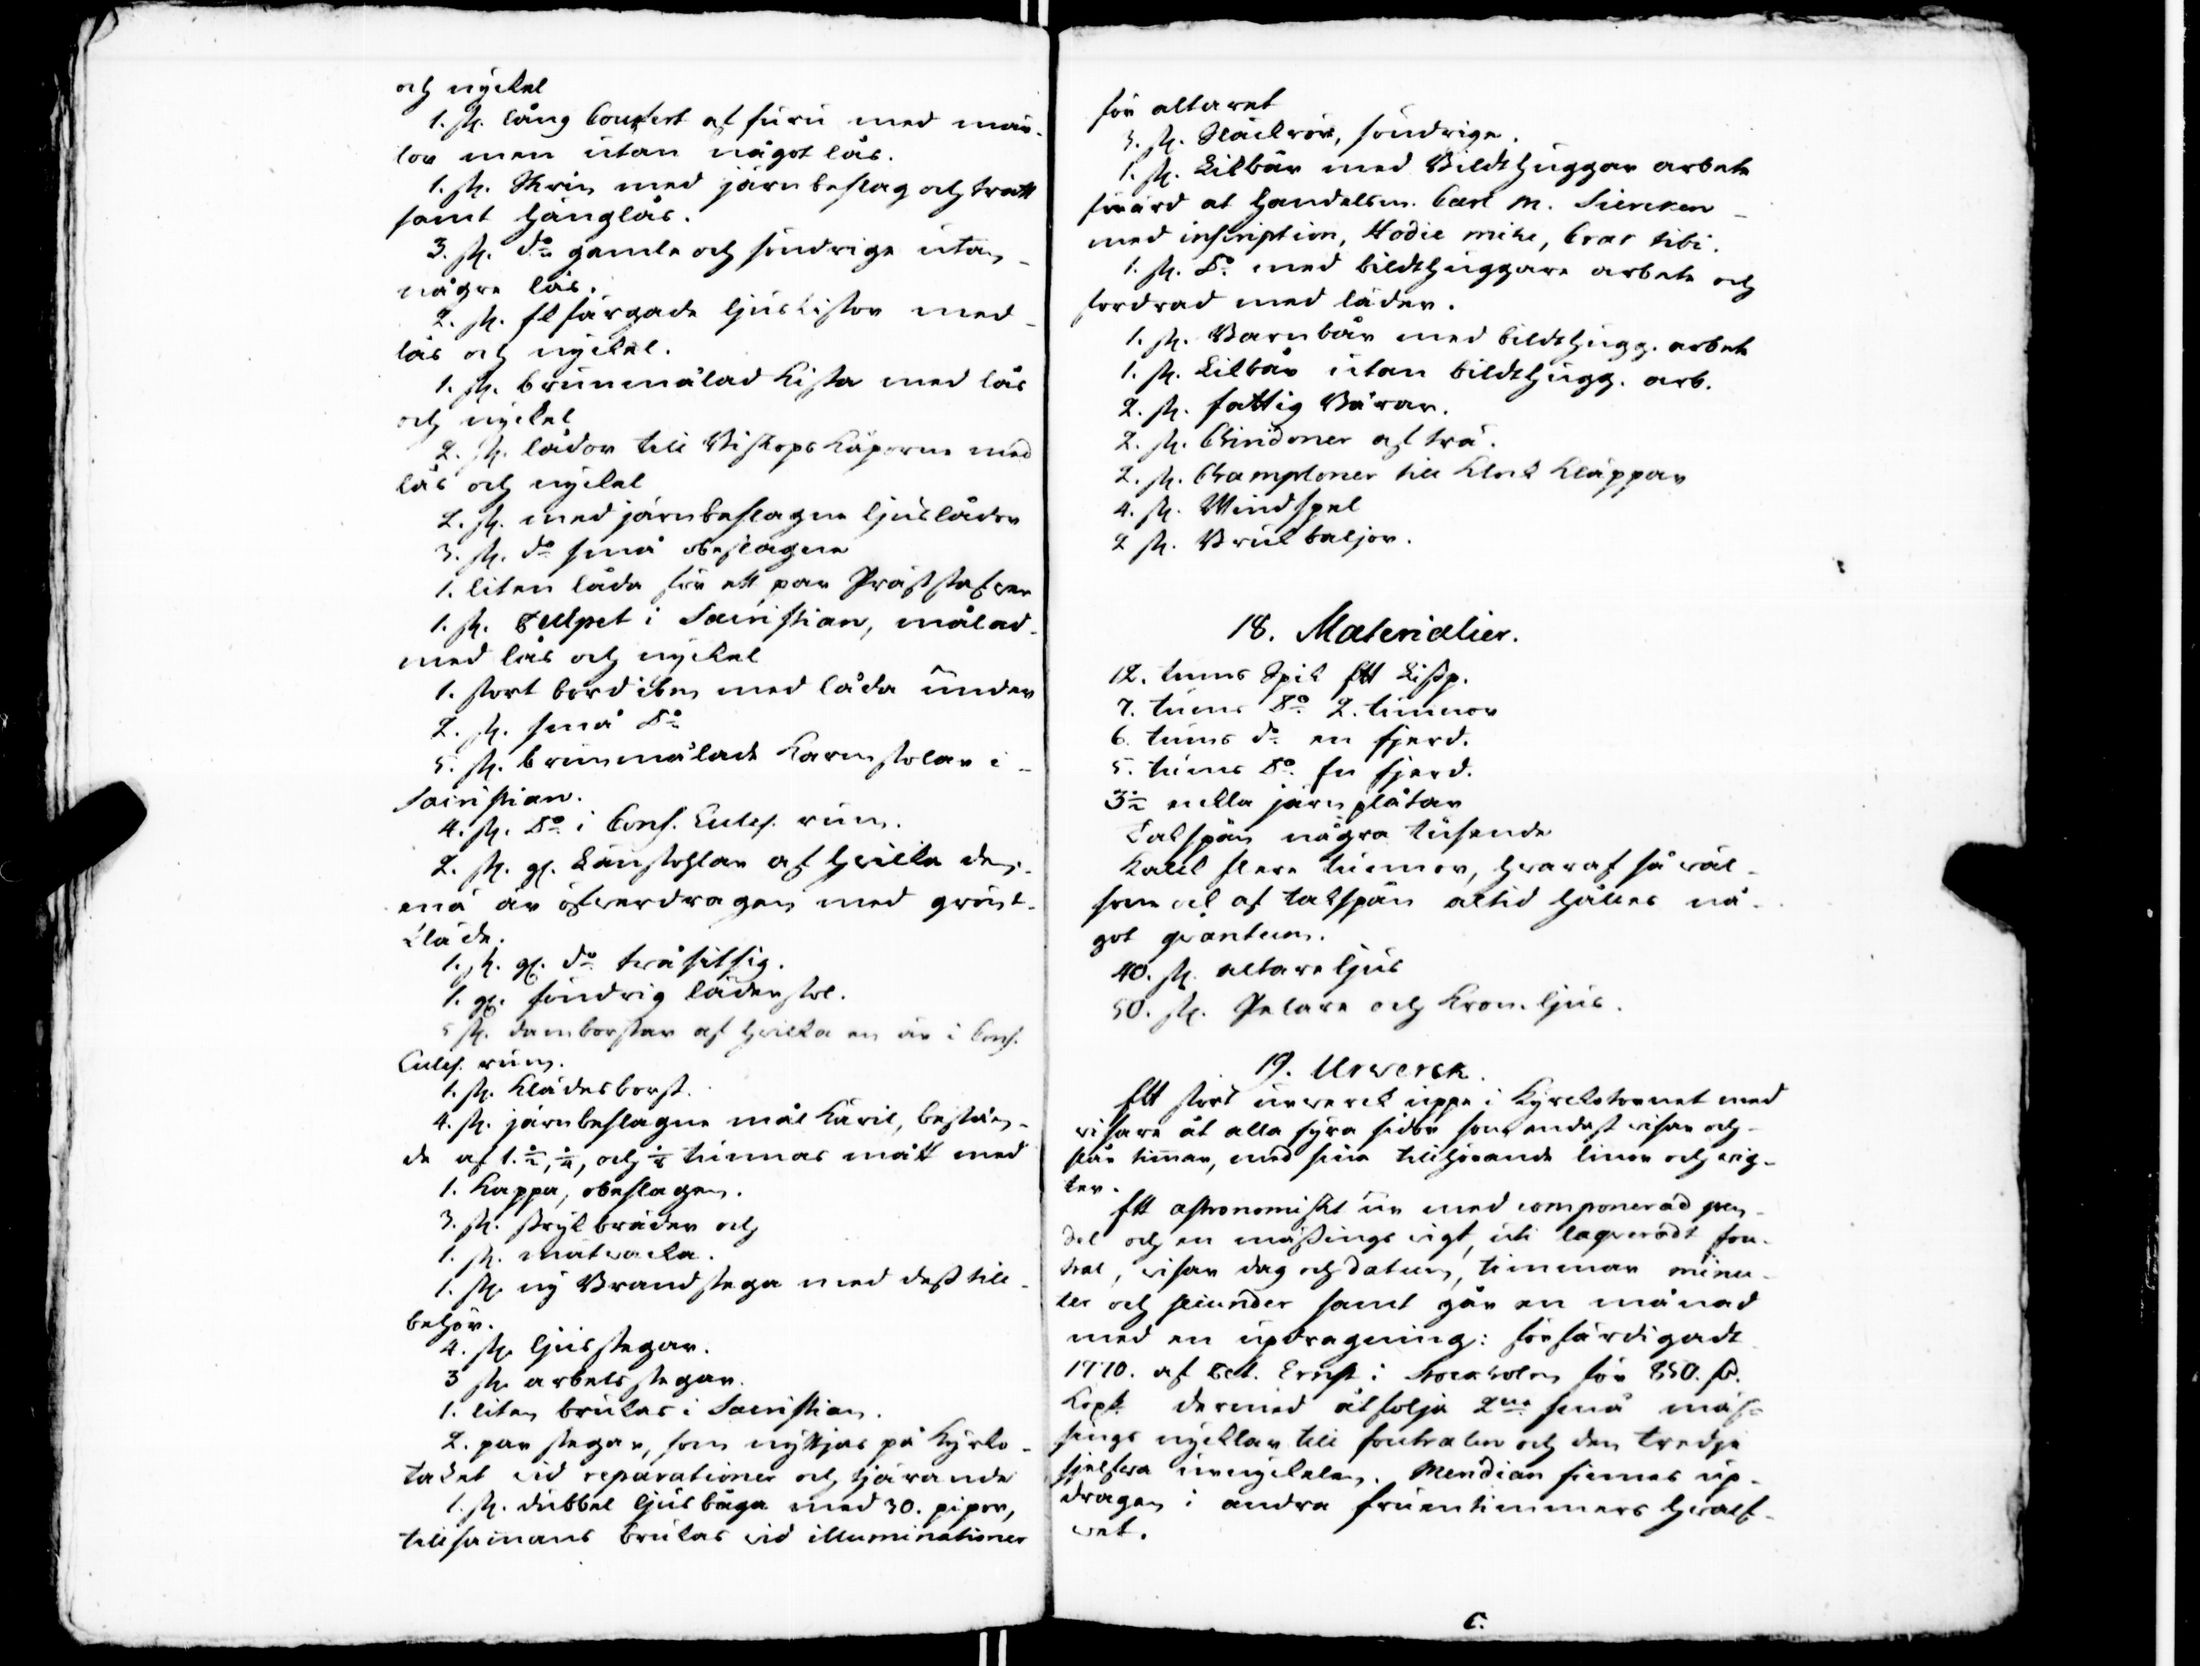 och nyckel
1. st. lång Coufert af furu med mär-
lor men utan något lås.
1. st. Skrin med järnbeslag och tratt
samt hänglås.
3. st. do gamla och söndrige utan
någre lås.
2. st. elfärgade ljuskistor med
lås och nyckel.
1. st. brunmålad Kista med lås
och nyckel
2. st. lådor till Biskopskåporne med
lås och nyckel
2. st. med järnbeslagne ljuslådor
3. st. do små obeslagne
1. liten låda för ett par Präststafwar
1. st. Pulpet i Sacristian, målad
med lås och nyckel
1. stort bord ibm med låda under
2. st. små Do
5. st. brunmålade Karmstolar i
Sacristian.
4. st. Do i Cons. Eccles. rum.
2. st. gl. Länstohlar af hwilka den
ena är öfwerdragen med grönt
kläde.
1. st. gl. do träsitsig.
1. gl. söndrig läderstol.
5 st. damborstar af hwilka en är i Cons.
Eccles. rum.
1. st. Klädesborst.
4. st. järnbeslagne mål Käril, bestäen-
de af 1. ½, ¼, och ⅛ tunnas mått med
1. Kappa, obeslagen.
3. st. strykbräder och
1. st. mäteracka.
1. st. ny Brandstega med dess till-
behör.
4. st. ljusstegar.
3 st. arbetsstegar.
1. liten brukas i Sacristian.
2. par stegar, som nyttjas på Kyrko-
taket vid reparationer och tjärande
1. st. dubbel ljusbåga med 30. pipor,
tillsammans brukas vid illuminationer
för altaret
3. st. Släckrör, söndrige.
1. st. Likbår med Bildthuggar arbete
förärd af Handelsm. Carl M. Siercken
med inscription, Hodie mihi, Cras tibi.
1. st. Do med bildthuggare arbete och
fordrad med läder.
1. st. Barnbår med bildthugg. arbete
1. st. Likbår utan bildthugg. arb.
2. st. fattig Bårar.
2. st. af trä.
2. st. Champloner till Klock Kläppar
4. st. Windspel
2 st. Brukbaljor.
18. Materialier.
12. tums Spik Ett Lissp.
7. tums Do 2. tunnor
6. tums do en fjerd.
5. tums Do En fjerd.
3½ enkla järnplåtar
Takspån några tusende
Kalck flere tunnor, hwaraf så wäl
som ock af takspån altid hålles nå-
got quantum.
40. st. altareljus
50. st. Pelare och Kronljus.
19. Urwerck.
Ett stort urwerck uppe i Kyrckotornet med
wisare åt alla fyra sidor som endast wisar och
slår timar, med sina tillhörande linor och wig-
ter.
Ett astronomiskt ur med componerad pen-
del och en mässings wigt, uti laqueradt fou-
tral, wisar dag och datum, timmar minu-
ter och secunder samt går en månad
med en updragning: förfärdigadt
1770. af Pet. Ernst i Stockholm för 850. D.
Kopt. dermed åtfölja 2ne små mäs-
sings nycklar till foutralen och den tredje
sjelfwa urnyckelen. Meridian finnes up-
dragen i andra fruentimmers hwalf-
wet.
C.